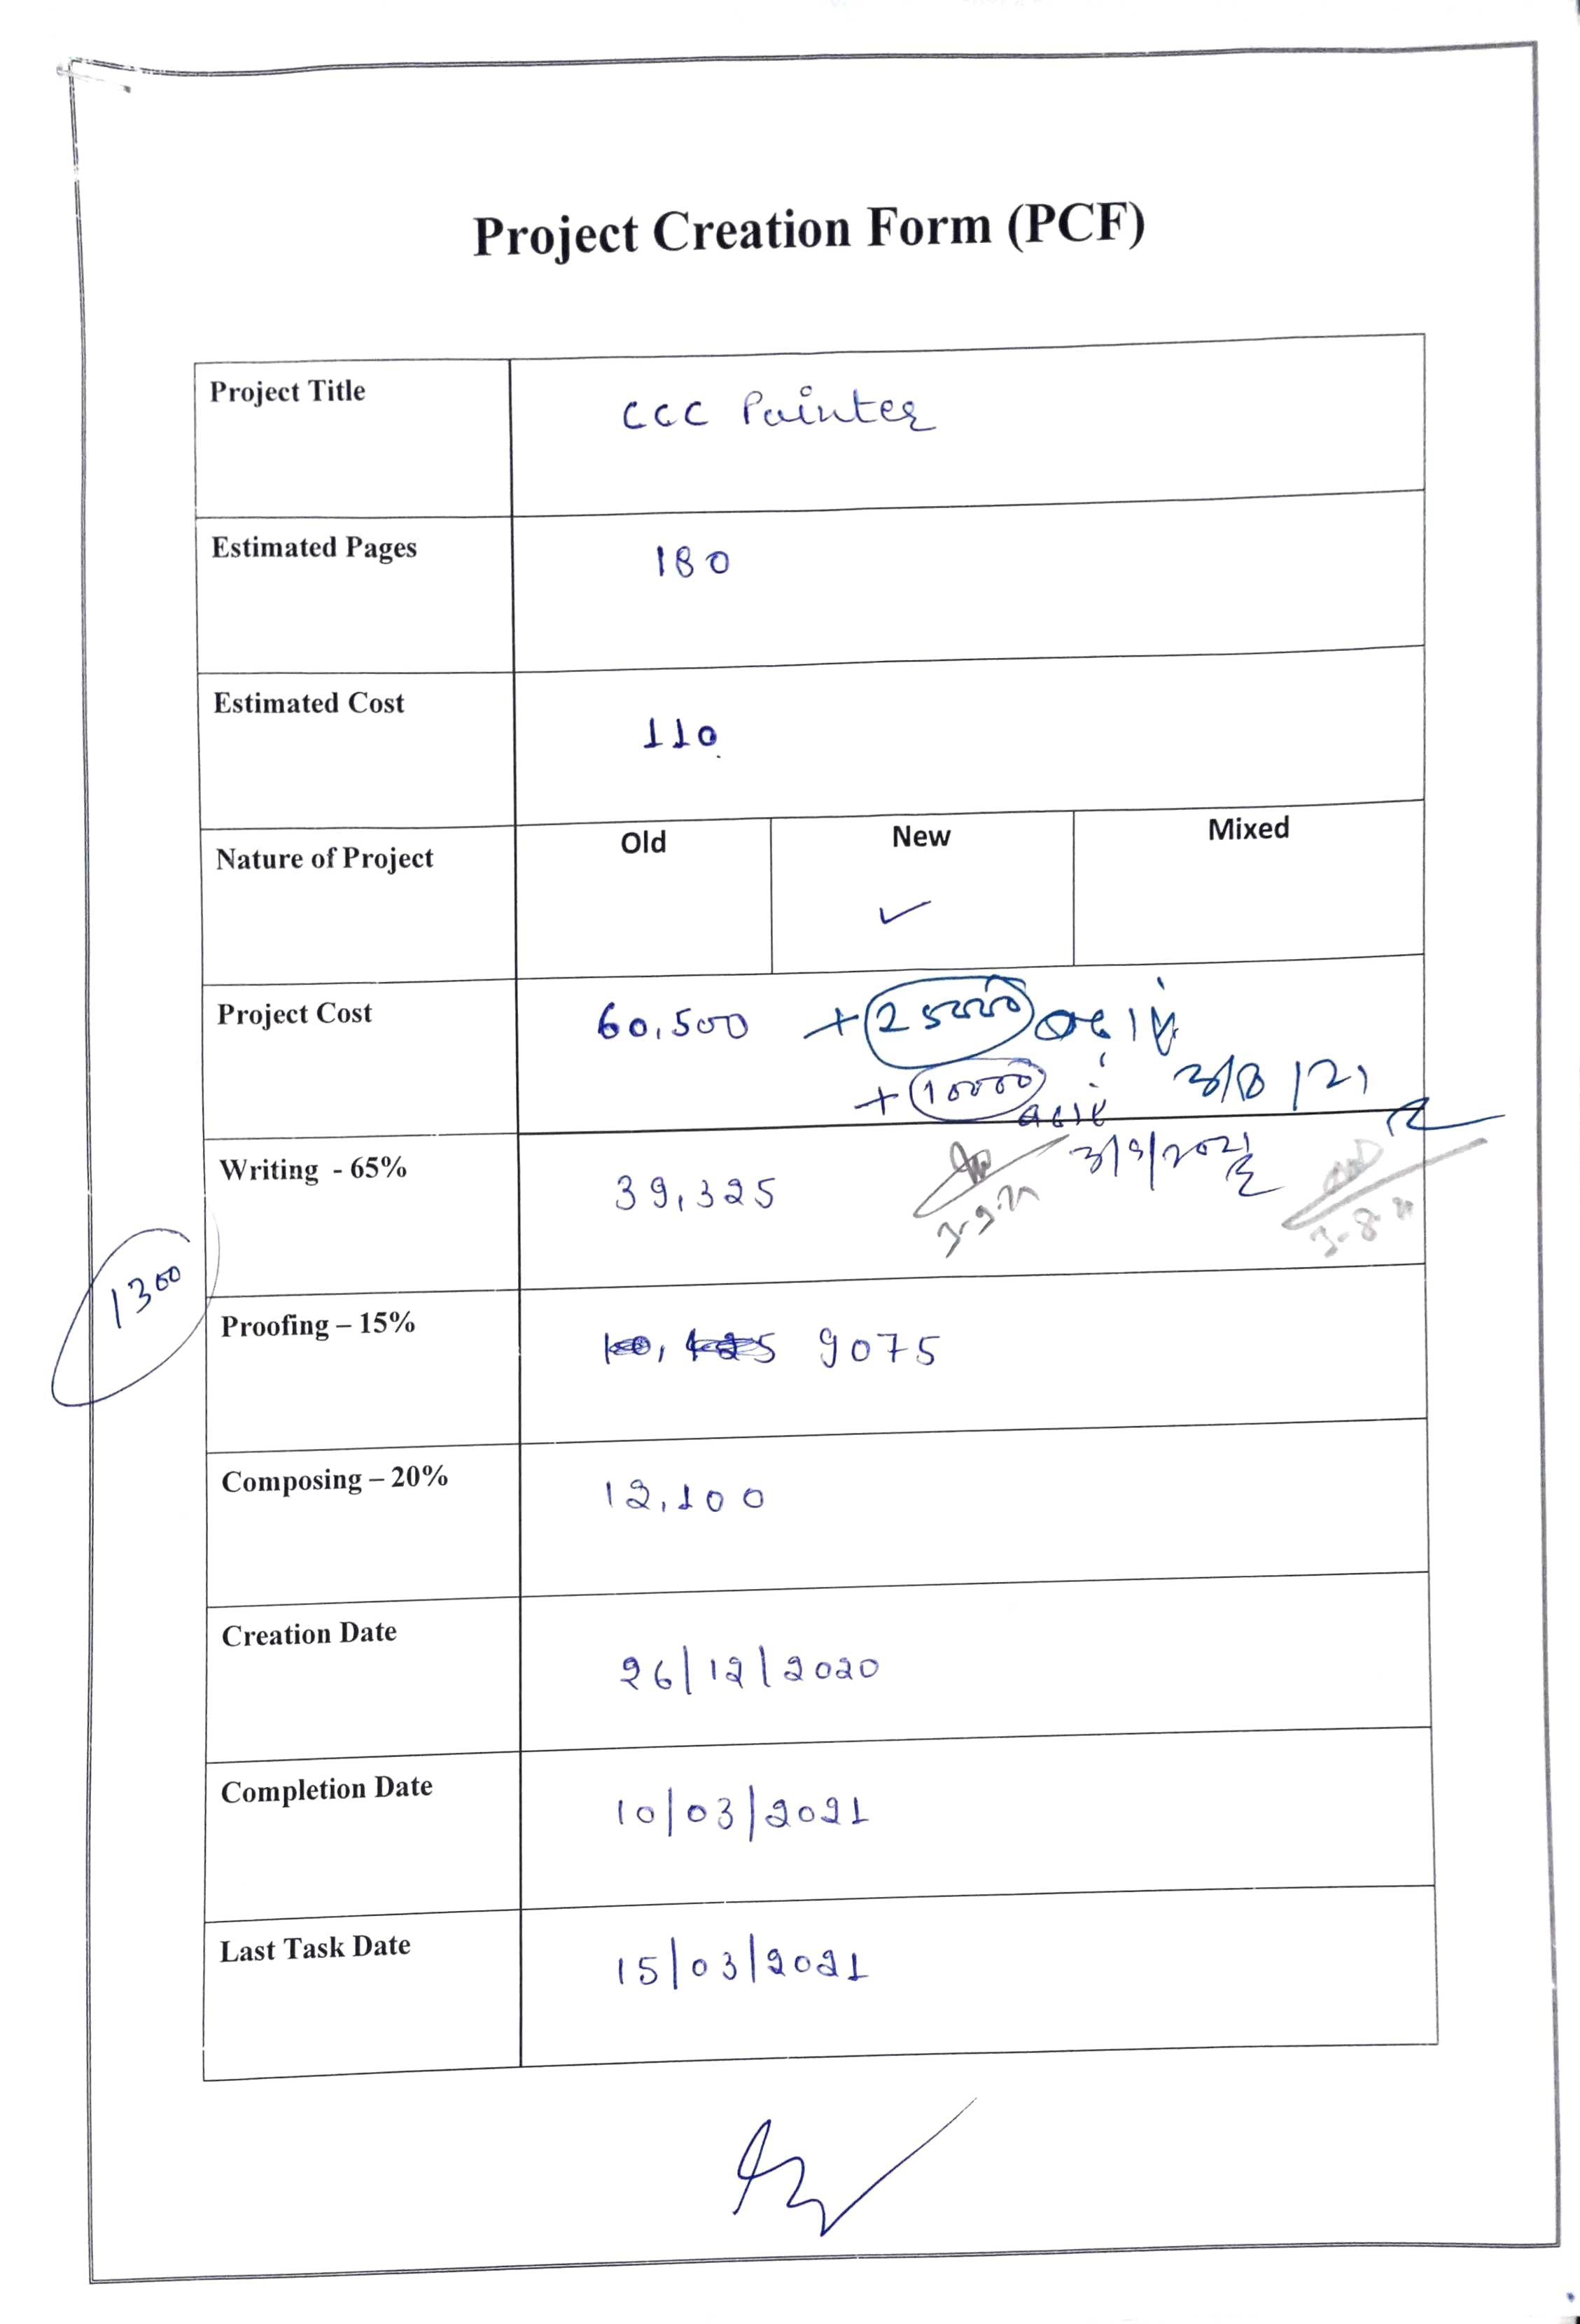 Project Creation Form (PCF)
Project Title
CCC Painter
Estimated Pages
180
Estimated Cost
110
Nature of Project
Old
New
✓
Mixed
Project Cost
60,500 + 25000
3/8/21
+ 10000
Writing - 65%
39,325
3/9/2021
3-9-21
3-8-21
1300
Proofing – 15%
9075
Composing – 20%
12,100
Creation Date
26/12/2020
Completion Date
10/03/2021
Last Task Date
15/03/2021